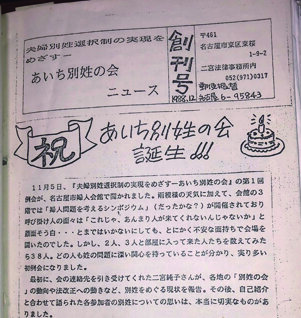 夫婦別姓選択制の実現を
めざすー
あいち別姓の会
ニュース
創刊号
1988.12
〒461
名古屋市東区東桜
1-9-2
二宮法律事務所内
052(971)0317
郵便振替
名古屋6-95843
祝
あいち別姓の会
誕生!!!
11月5日、『夫婦別姓選択制の実現をめざすーあいち別姓の会』の第1回
例会が、名古屋市婦人会館で開かれました。雨模様の天気に加えて、会館の3
階では「婦人問題を考えるシンポジウム」（だったかな？）が開催されており
呼び掛け人の面々は「これじゃ、あんまり人が来てくれないんじゃないか」と
・・・とまではいかないにしても、とにかく不安な面持ちで会場を
開いたのでした。しかし、2人、3人と部屋に入って来た人たちを数えてみた
ら38人。どの人も姓の問題に深い関心を持っていることが分かり、実り多い
初例会になりました。
最初に、会の連絡先を引き受けてくれた二宮純子さんが、各地の「別姓の会」
の動向や法改正への動きなど、別姓をめぐる現状を報告。その後、自己紹介
と合わせて語られた各参加者の別姓についての思いは、本当に切実なものがあ
りました。